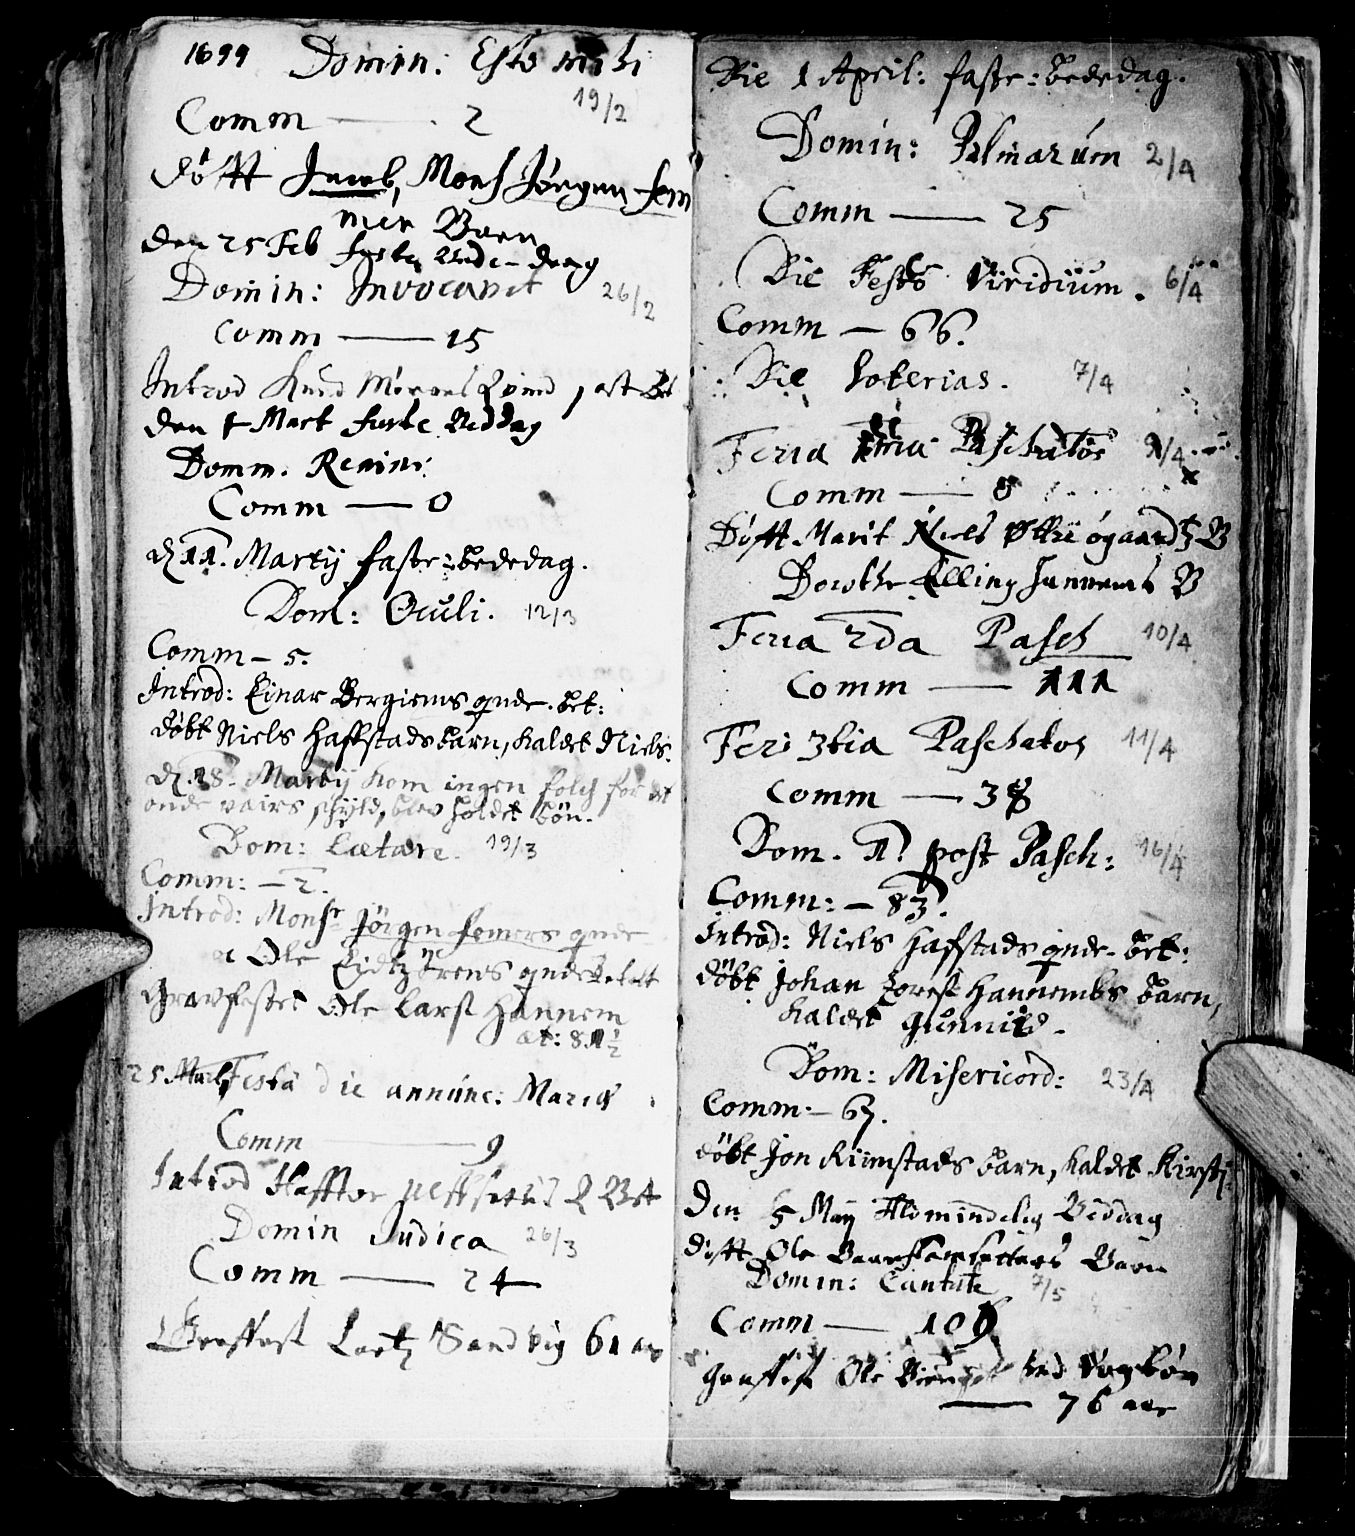 1699 Domin: Esto mihi
19/2
Comm — 2
döfft Jacob, Mons Jörgen Fem
mer Barn
den 25 Feb faste Bede-dag
Domin: Invocavit 26/2
Comm — 15
Introd Knud
den 1 Mart faste Beddag
Domm. Remini:
Comm — 0
d. 11. Martij faste-bededag.
Dom: Oculi. 12/3
Comm — 5.
Introd: Einar Bergiems qnde. bet:
döbt Niels Haffstads barn, kaldet Niels.
d. 18. Martij kom ingen folch for det
onde vairs skyld, blev holdet bön.
Dom: Lætare. 19/3
Comm: — 2.
Introd: Monsr Jörgen Femers qnde
Ole qnde
Gravfestet Ole Larss Hannem
æt: 81 1/2
25 Mart Festa die annunc: Mariæ
Comm — 9
Introd Hafftor
Domin Judica 26/3
Comm — 24
Graffest Lartz Sandvig 61 aar
Die 1 April: faste-bededag.
Domin: Palmarum 2/4
Comm — 25
Die Festo Viridium. 6/4
Comm — 66.
Die Soterias. 7/4
Feria 1ma Paschatos 9/4
Comm — 8
Döfft Marit Niels B
Dorothe Elling Hannems B
Feria 2da Pasch 10/4
Comm — 111
Feri 3tia Paschatos 11/4
Comm — 38
Dom. 1. post Pasch: 16/4
Comm: — 83.
Introd: Niels Hafstads qnde. bet:
döbt Johan Hannembs barn,
kaldet Gunnild.
Dom: Misericord: 23/4
Comm: — 67.
döbt Jon Rimstads barn, kaldet Kirsti.
Den 5 Maij Allmindelig Beddag
döfft Ole Barn
Domin: Cantate 7/5
Comm — 106
Graffest Ole
— 76 aar